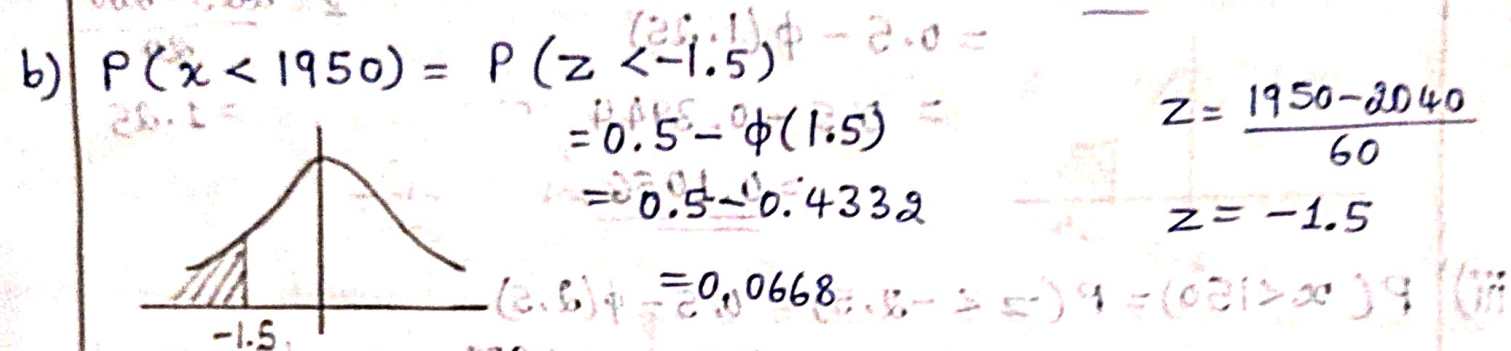 b) P(x < 1950) = P(z < -1.5)
= 0.5 - φ(1.5)
= 0.5 - 0.4332
= 0.0668
z = 1950-2040 / 60
z = -1.5
-1.5